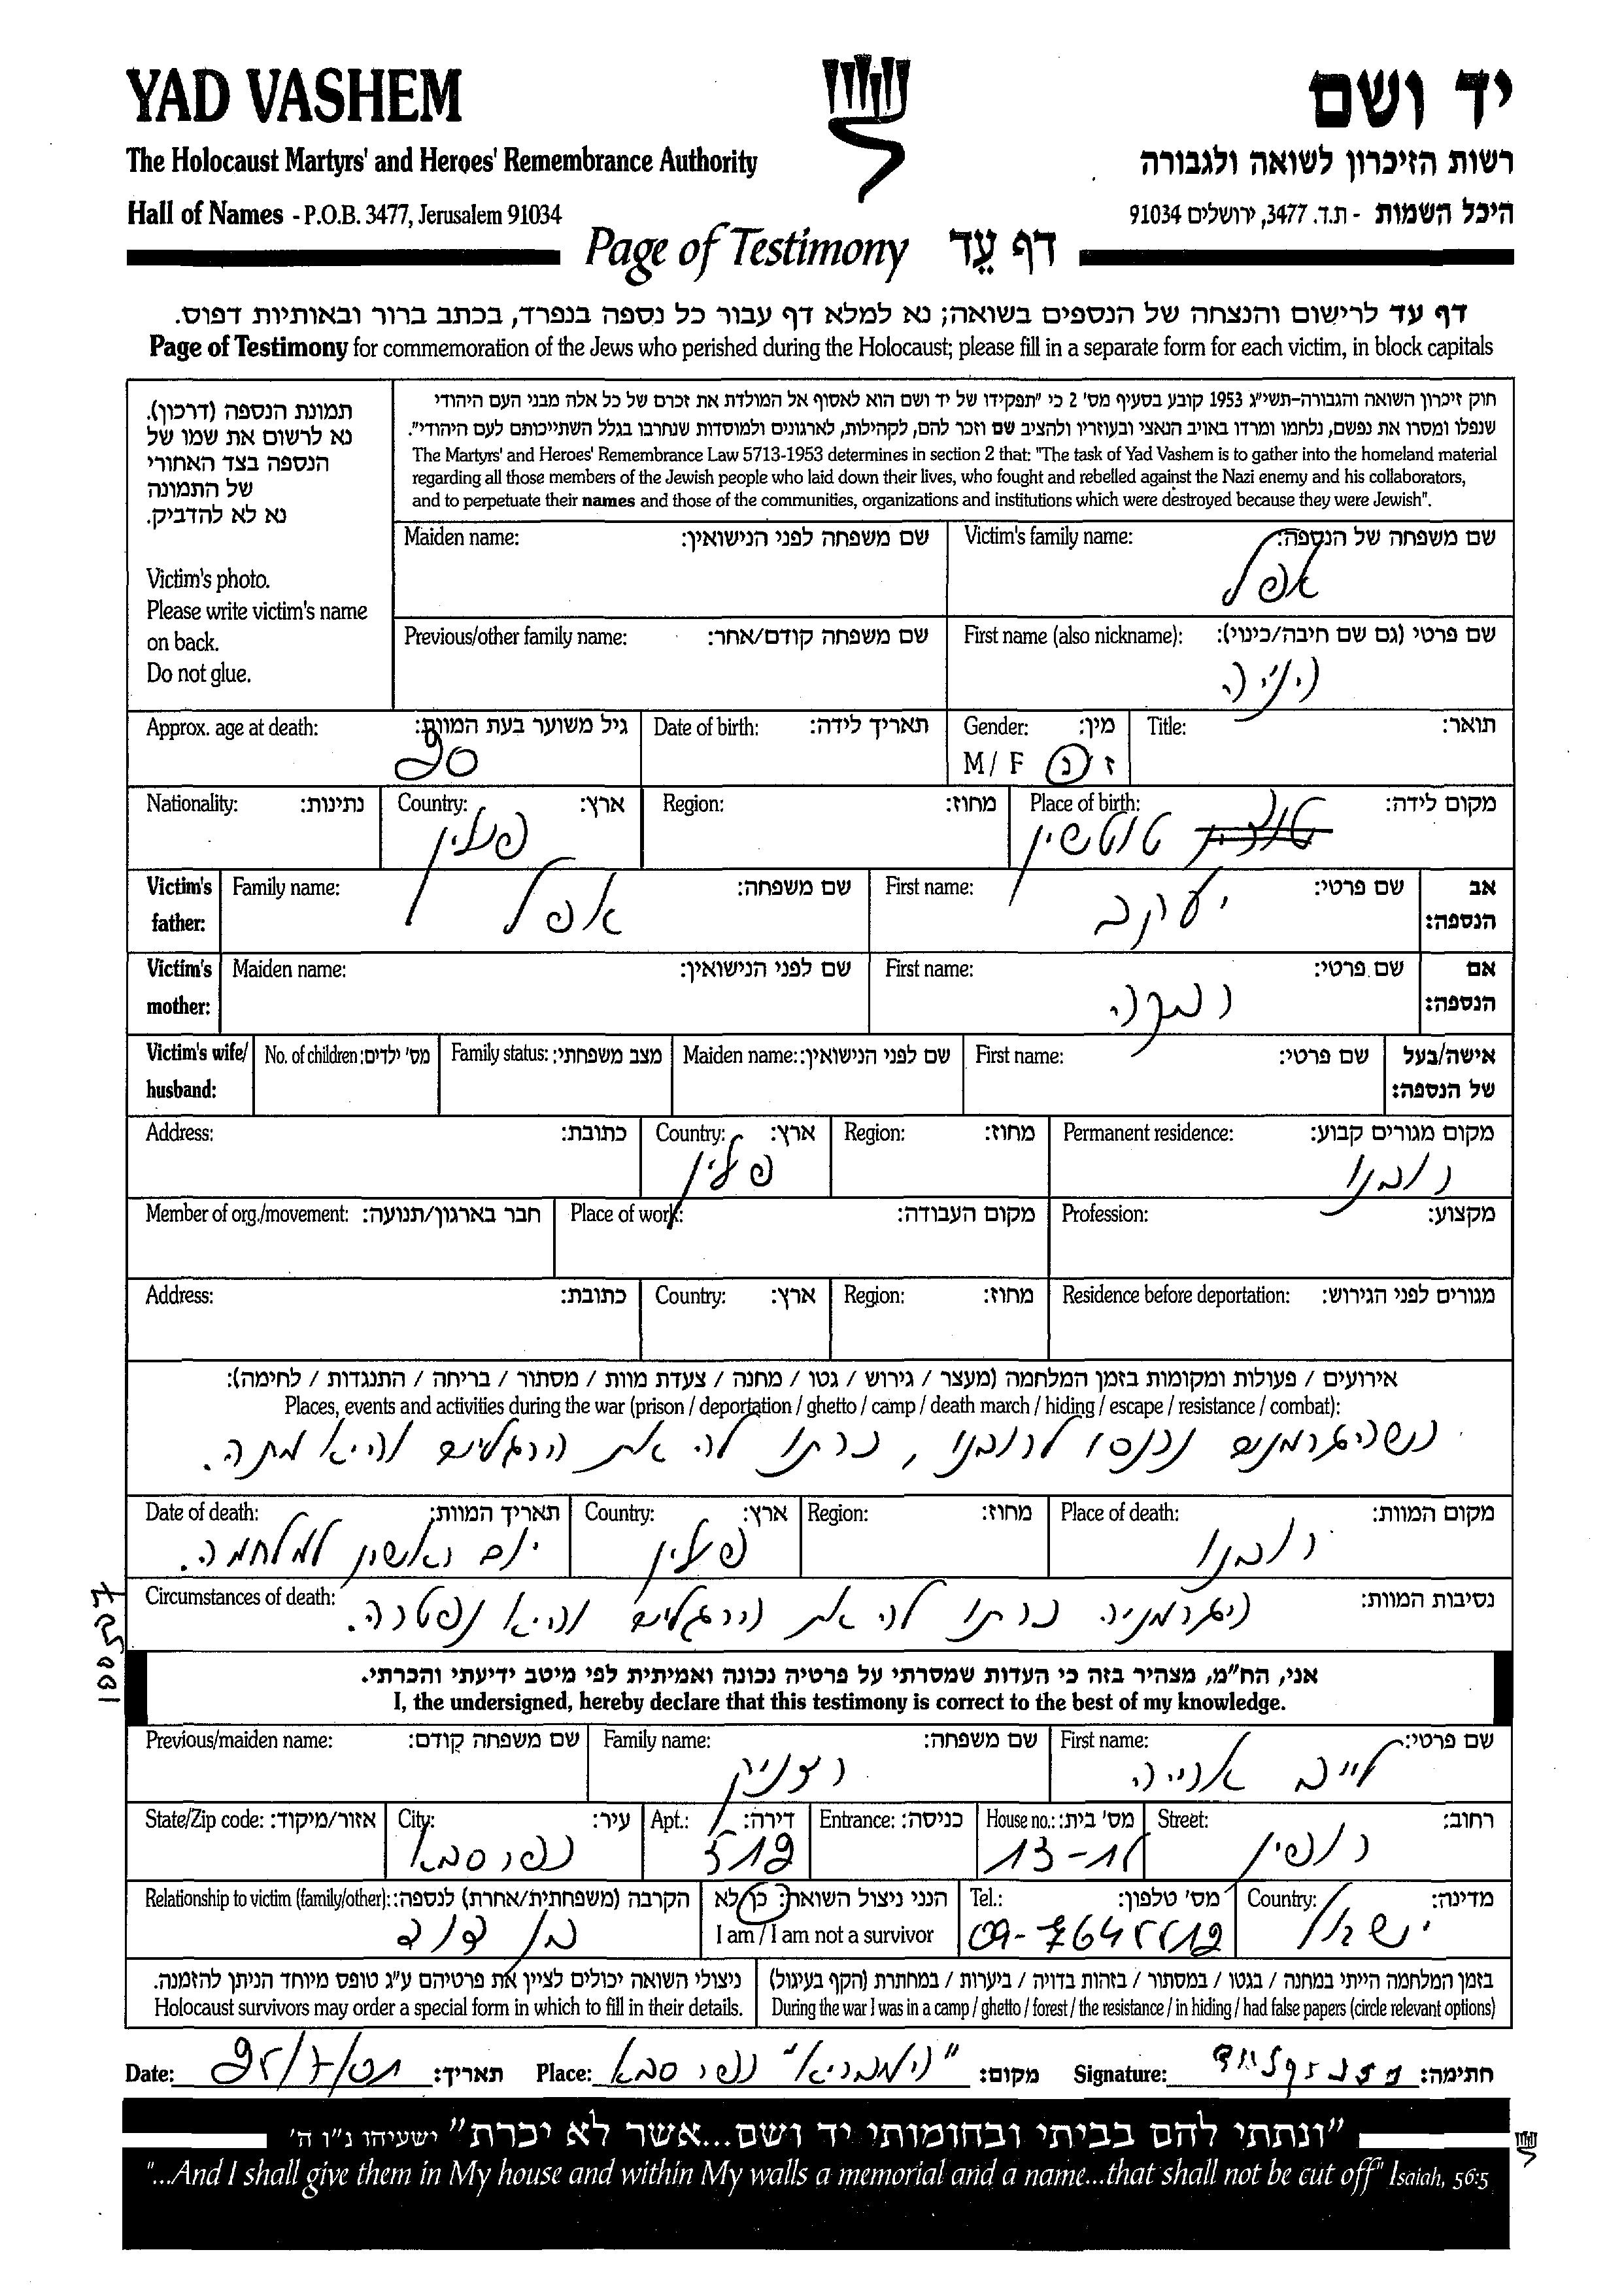 YAD VASHEM
יד ושם
The Holocaust Martyrs' and Heroes' Remembrance Authority
רשות הזיכרון לשואה ולגבורה
Hall of Names - P.O.B. 3477, Jerusalem 91034
היכל השמות - ת.ד. 3477, ירושלים 91034
Page of Testimony דף עֵד
דף עד לרישום והנצחה של הנספים בשואה; נא למלא דף עבור כל נספה בנפרד, בכתב ברור ובאותיות דפוס.
Page of Testimony for commemoration of the Jews who perished during the Holocaust; please fill in a separate form for each victim, in block capitals
תמונת הנספה (דרכון).
נא לרשום את שמו של
הנספה בצד האחורי
של התמונה
נא לא להדביק.
Victim's photo.
Please write victim's name
on back.
Do not glue.
חוק זיכרון השואה והגבורה-תשי"ג 1953 קובע בסעיף מס' 2 כי "תפקידו של יד ושם הוא לאסוף אל המולדת את זכרם של כל אלה מבני העם היהודי
שנפלו ומסרו את נפשם, נלחמו ומרדו באויב הנאצי ובעוזריו ולהציב שם וזכר להם, לקהילות, לארגונים ולמוסדות שנחרבו בגלל השתייכותם לעם היהודי".
The Martyrs' and Heroes' Remembrance Law 5713-1953 determines in section 2 that: "The task of Yad Vashem is to gather into the homeland material
regarding all those members of the Jewish people who laid down their lives, who fought and rebelled against the Nazi enemy and his collaborators,
and to perpetuate their names and those of the communities, organizations and institutions which were destroyed because they were Jewish".
Victim's family name: שם משפחה של הנספה:
אפל
Maiden name: שם משפחה לפני הנישואין:
First name (also nickname): שם פרטי (גם שם חיבה/כינוי):
הניה
Previous/other family name: שם משפחה קודם/אחר:
Title: תואר:
Gender: מין:
M / F ז / נ
Date of birth: תאריך לידה:
Approx. age at death: גיל משוער בעת המוות:
20
Place of birth: מקום לידה:
טוטשין
Region: מחוז:
Country: ארץ:
פולין
Nationality: נתינות:
אב הנספה:
First name: שם פרטי:
יעקב
Family name: שם משפחה:
אפל
Victim's father:
אם הנספה:
First name: שם פרטי:
רבקה
Maiden name: שם לפני הנישואין:
Victim's mother:
אישה/בעל של הנספה:
First name: שם פרטי:
Maiden name: שם לפני הנישואין:
Family status: מצב משפחתי:
No. of children: מס' ילדים:
Victim's wife/ husband:
Permanent residence: מקום מגורים קבוע:
רובנו
Region: מחוז:
Country: ארץ:
פולין
Address: כתובת:
Profession: מקצוע:
Place of work: מקום העבודה:
Member of org./movement: חבר בארגון/תנועה:
Residence before deportation: מגורים לפני הגירוש:
Region: מחוז:
Country: ארץ:
Address: כתובת:
אירועים / פעולות ומקומות בזמן המלחמה (מעצר / גירוש / גטו / מחנה / צעדת מוות / מסתור / בריחה / התנגדות / לחימה):
Places, events and activities during the war (prison / deportation / ghetto / camp / death march / hiding / escape / resistance / combat):
כשהגרמנים נכנסו לרובנו, כרתו לה את הרגלים והיא מתה.
Place of death: מקום המוות:
רובנו
Region: מחוז:
Country: ארץ:
פולין
Date of death: תאריך המוות:
יום ראשון למלחמה.
Circumstances of death: נסיבות המוות:
הגרמניה כרתו לה את הרגלים והיא נפטרה.
אני, הח"מ, מצהיר בזה כי העדות שמסרתי על פרטיה נכונה ואמיתית לפי מיטב ידיעתי והכרתי.
I, the undersigned, hereby declare that this testimony is correct to the best of my knowledge.
First name: שם פרטי:
לייב אריה
Family name: שם משפחה:
רצניק
Previous/maiden name: שם משפחה קודם:
Street: רחוב:
רופין
House no.: מס' בית:
Entrance: כניסה:
Apt.: דירה:
City: עיר:
כפר סבא
State/Zip code: אזור/מיקוד:
Country: מדינה:
ישראל
Tel.: מס' טלפון:
הנני ניצול השואה: כן/לא
I am / I am not a survivor
Relationship to victim (family/other): הקרבה (משפחתית/אחרת) לנספה:
בן דוד
בזמן המלחמה הייתי במחנה / בגטו / במסתור / בזהות בדויה / ביערות / במחתרת (הקף בעיגול)
During the war I was in a camp / ghetto / forest / the resistance / in hiding / had false papers (circle relevant options)
ניצולי השואה יכולים לציין את פרטיהם ע"ג טופס מיוחד הניתן להזמנה.
Holocaust survivors may order a special form in which to fill in their details.
Signature: חתימה:
Place: כפר סבא מקום:
Date: תאריך:
"ונתתי להם בביתי ובחומותי יד ושם...אשר לא יכרת" ישעיהו נ"ו ה'
"...And I shall give them in My house and within My walls a memorial and a name...that shall not be cut off" Isaiah, 56:5